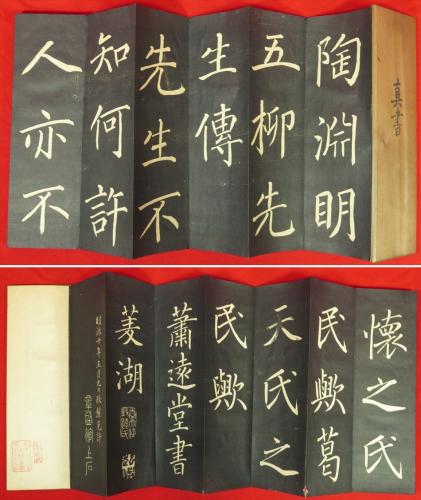 真書
陶淵明
五柳先
生傳
先生不
知何許
人亦不
懐之氏
民歟葛
天氏之
民歟
蕭遠堂書
菱湖